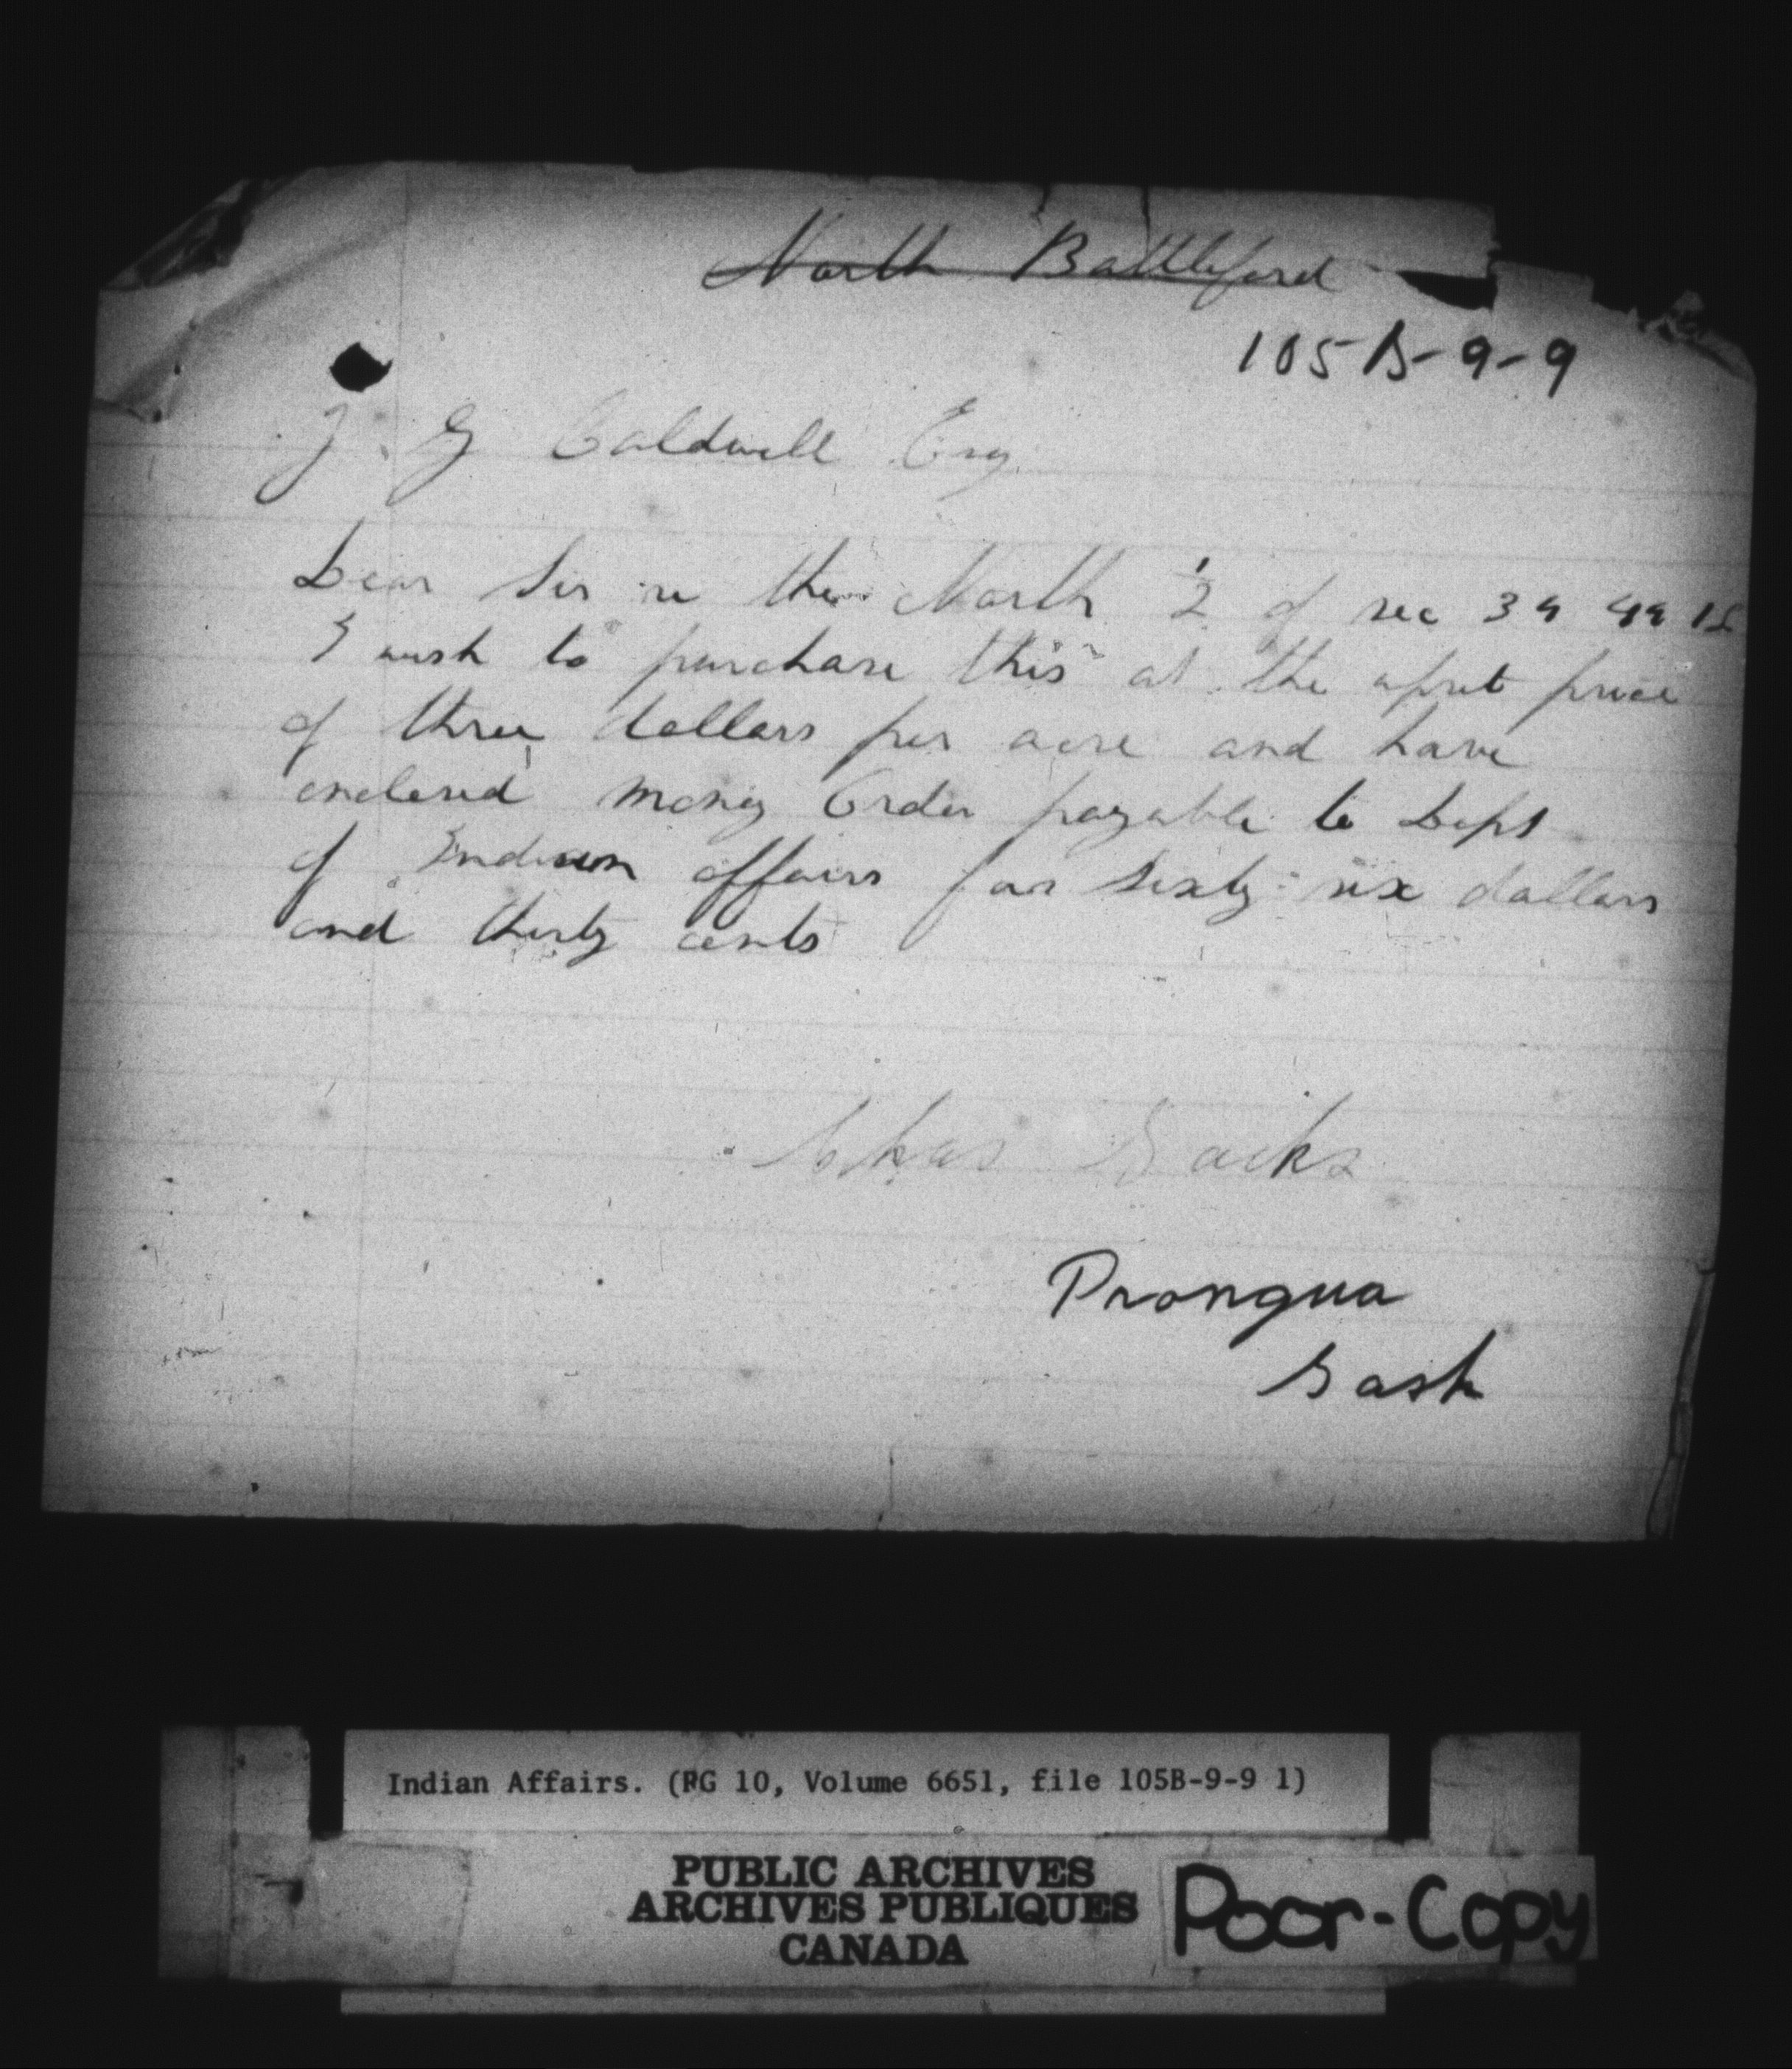 North Battleford
105B-9-9
J. G Caldwell Esq.
Dear Sir re the North ½ of sec 34 44 18
I wish to purchase this at the upset price
of three dollars per acre and have
enclosed money Order payable to Dept
of Indian affairs for Sixty six dollars
and thirty cents
Chas
Prongua
Sask
Indian Affairs. (RG 10, Volume 6651, file 105B-9-9 1)
PUBLIC ARCHIVES
ARCHIVES PUBLIQUES
CANADA
Poor-Copy